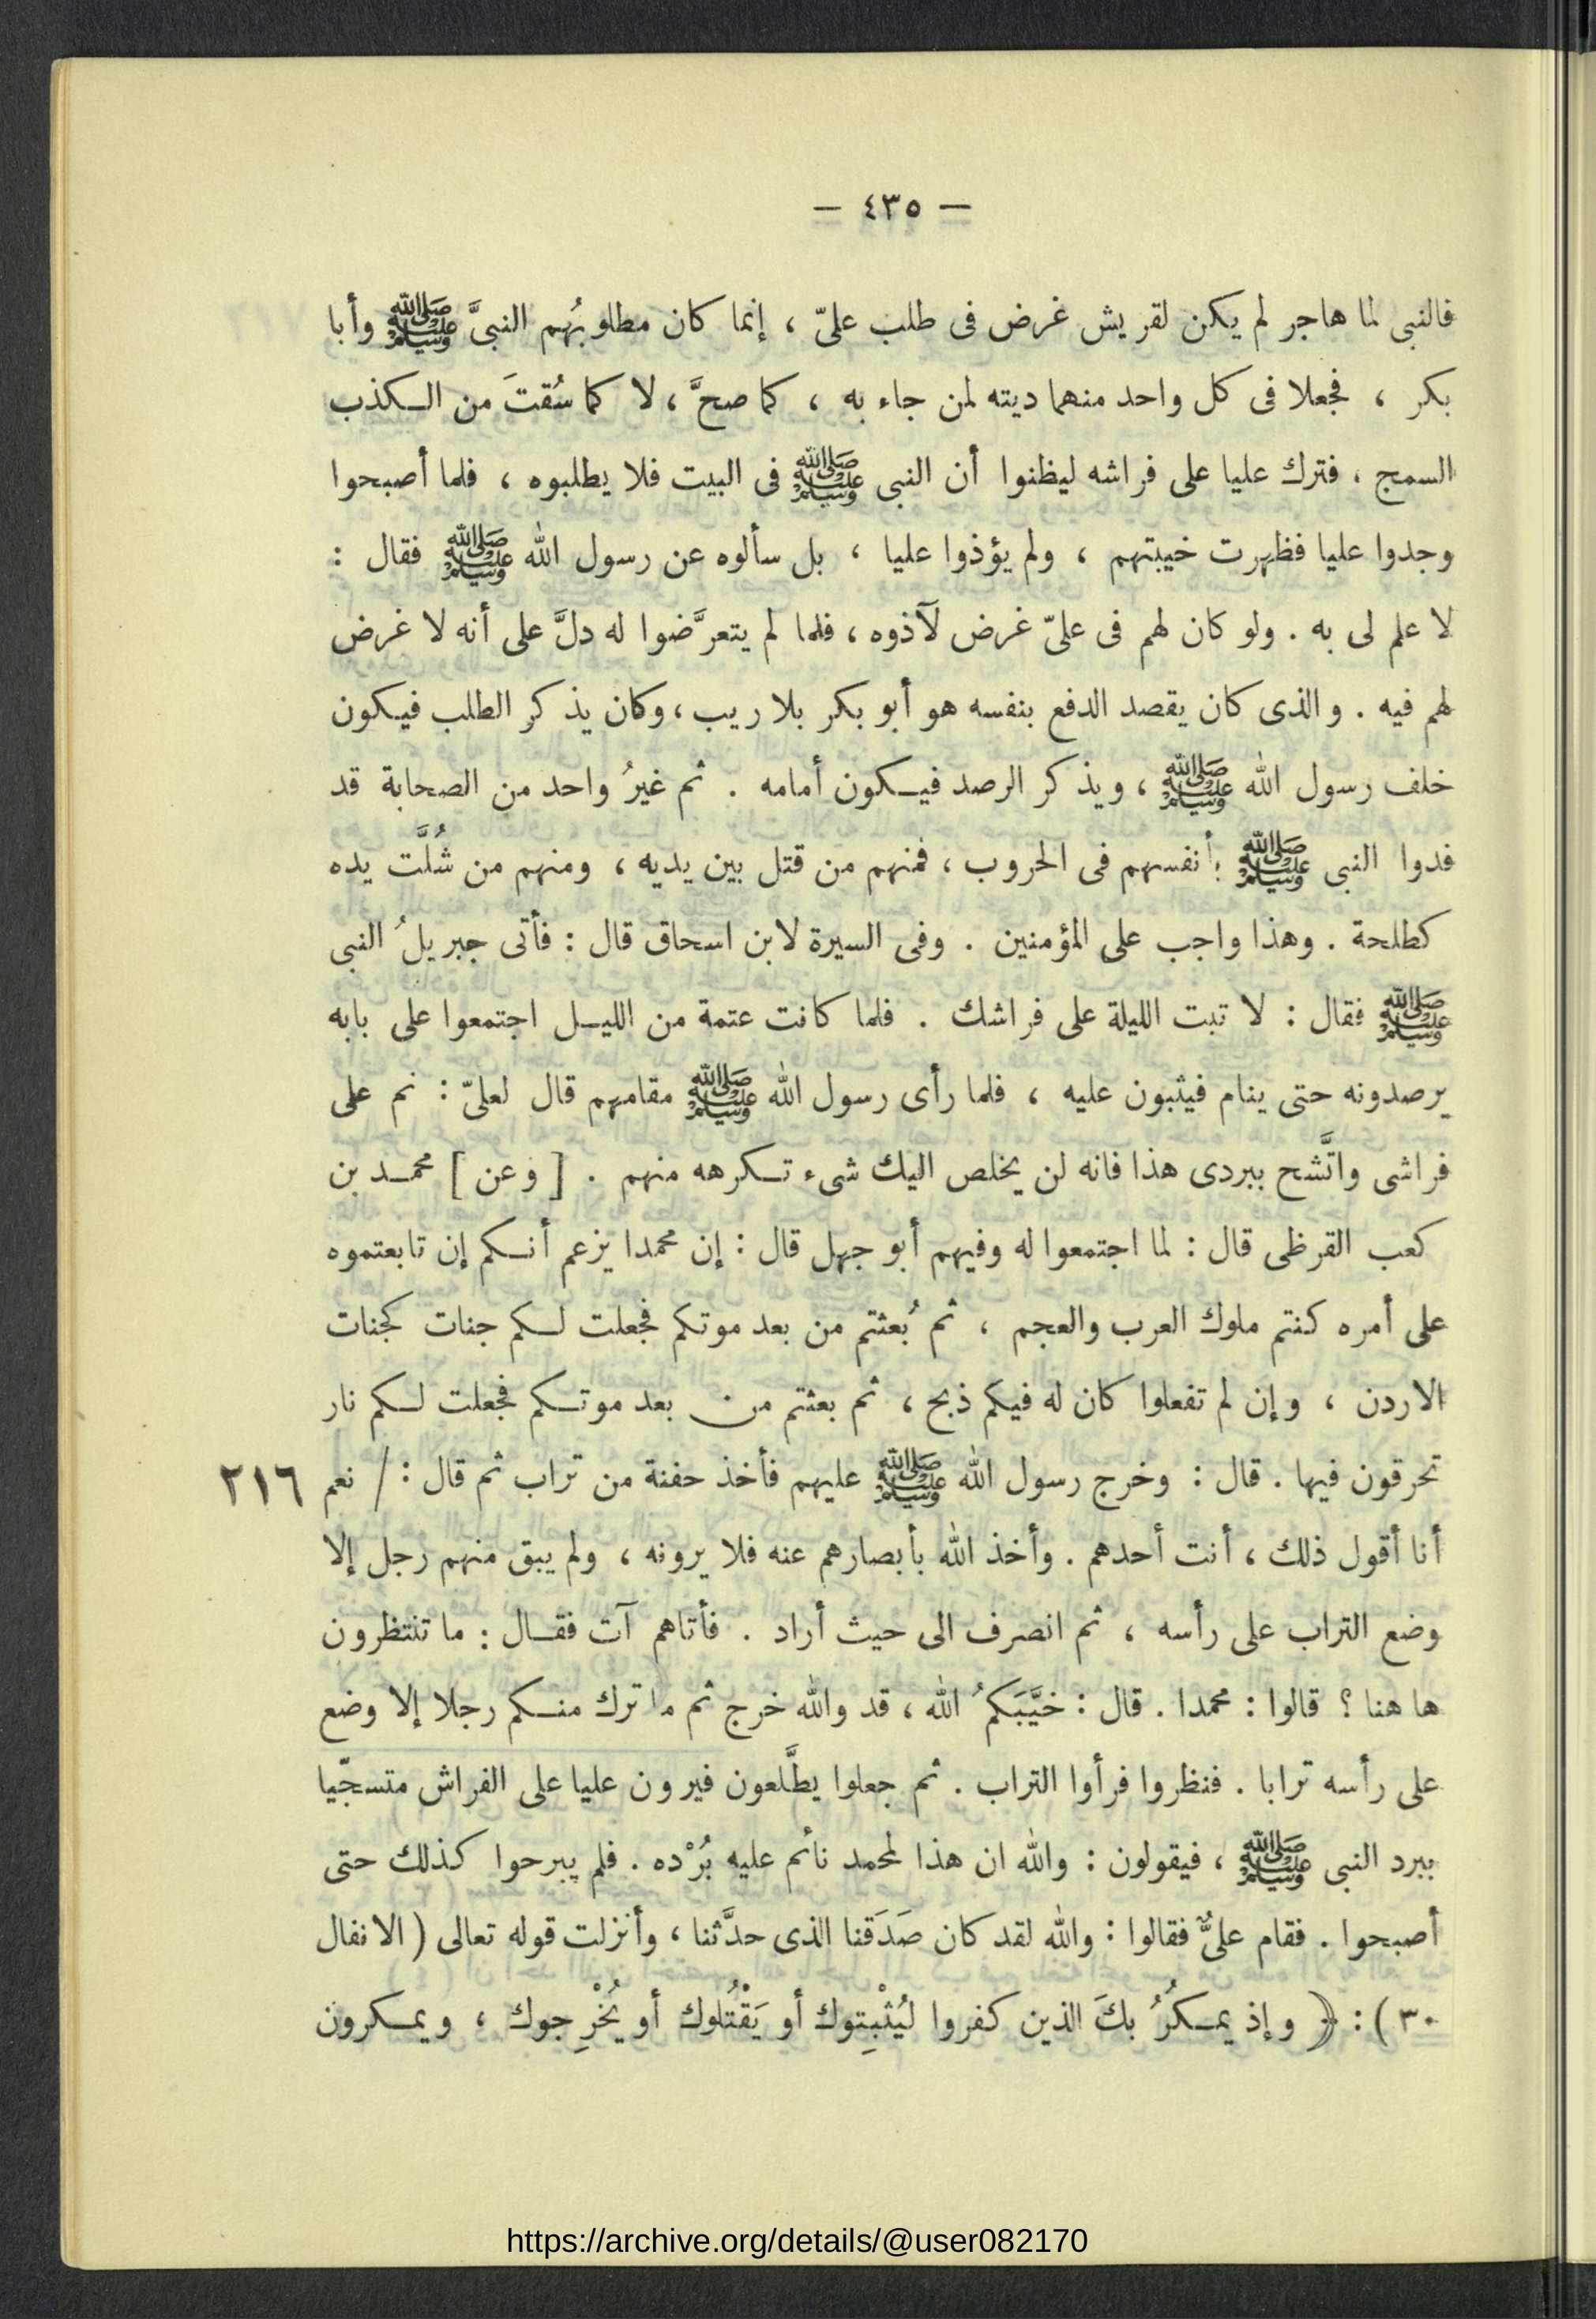 — ٤٣٥ —
فالنبى لما هاجر لم يكن لقريش غرض فى طلب علىّ ، إنما كان مطلوبُهم النبىَّ ﷺ وأبا
بكر ، فجعلا فى كل واحد منهما ديته لمن جاء به ، كما صحَّ ، لا كما سُقتَ من الـكذب
السمج ، فترك عليا على فراشه ليظنوا أن النبى ﷺ فى البيت فلا يطلبوه ، فلما أصبحوا
وجدوا عليا فظهرت خيبتهم ، ولم يؤذوا عليا ، بل سألوه عن رسول الله ﷺ فقال :
لا علم لى به . ولو كان لهم فى علىّ غرض لآذوه ، فلما لم يتعرَّضوا له دلَّ على أنه لا غرض
لهم فيه . والذى كان يقصد الدفع بنفسه هو أبو بكر بلا ريب ، وكان يذكر الطلب فيـكون
خلف رسول الله ﷺ ، ويذكر الرصد فيـكون أمامه . ثم غيرُ واحد من الصحابة قد
فدوا النبى ﷺ بأنفسهم فى الحروب ، فمنهم من قتل بين يديه ، ومنهم من شُلَّت يده
كطلحة . وهذا واجب على المؤمنين . وفى السيرة لابن اسحاق قال : فأتى جبريلُ النبى
ﷺ فقال : لا تبت الليلة على فراشك . فلما كانت عتمة من الليـل اجتمعوا على بابه
يرصدونه حتى ينام فيثبون عليه ، فلما رأى رسول الله ﷺ مقامهم قال لعلىّ : نم على
فراشى واتَّشح ببردى هذا فانه لن يخلص اليك شىء تـكرهه منهم . [ وعن ] محمـد بن
كعب القرظى قال : لما اجتمعوا له وفيهم أبو جهل قال : إن محمدا يزعم أنـكم إن تابعتموه
على أمره كنتم ملوك العرب والعجم ، ثم بُعثتم من بعد موتكم فجعلت لـكم جنات كجنات
الاردن ، وإن لم تفعلوا كان له فيكم ذبح ، ثم بعثتم من بعد موتـكم فجعلت لـكم نار
تحرقون فيها . قال : وخرج رسول الله ﷺ عليهم فأخذ حفنة من تراب ثم قال : / نعم ٢١٦
أنا أقول ذلك ، أنت أحدهم . وأخذ الله بأبصارهم عنه فلا يرونه ، ولم يبق منهم رجل إلا
وضع التراب على رأسه ، ثم انصرف الى حيث أراد . فأتاهم آت فقـال : ما تنتظرون
ها هنا ؟ قالوا : محمدا . قال : خيَّبَكمُ الله ، قد والله خرج ثم ما ترك منـكم رجلا إلا وضع
على رأسه ترابا . فنظروا فرأوا التراب . ثم جعلوا يطَّلعون فيرون عليا على الفراش متسجّيا
ببرد النبى ﷺ ، فيقولون : والله ان هذا لمحمد نائم عليه بُرْده . فلم يبرحوا كذلك حتى
أصبحوا . فقام علىٌّ فقالوا : والله لقد كان صَدَقنا الذى حدَّثنا ، وأنزلت قوله تعالى ( الانفال
٣٠ ) : ﴿ وإذ يمـكُرُ بكَ الذين كفروا ليُثْبِتوك أو يَقْتُلوك أو يُخْرِجوك ، ويمـكرون
https://archive.org/details/@user082170